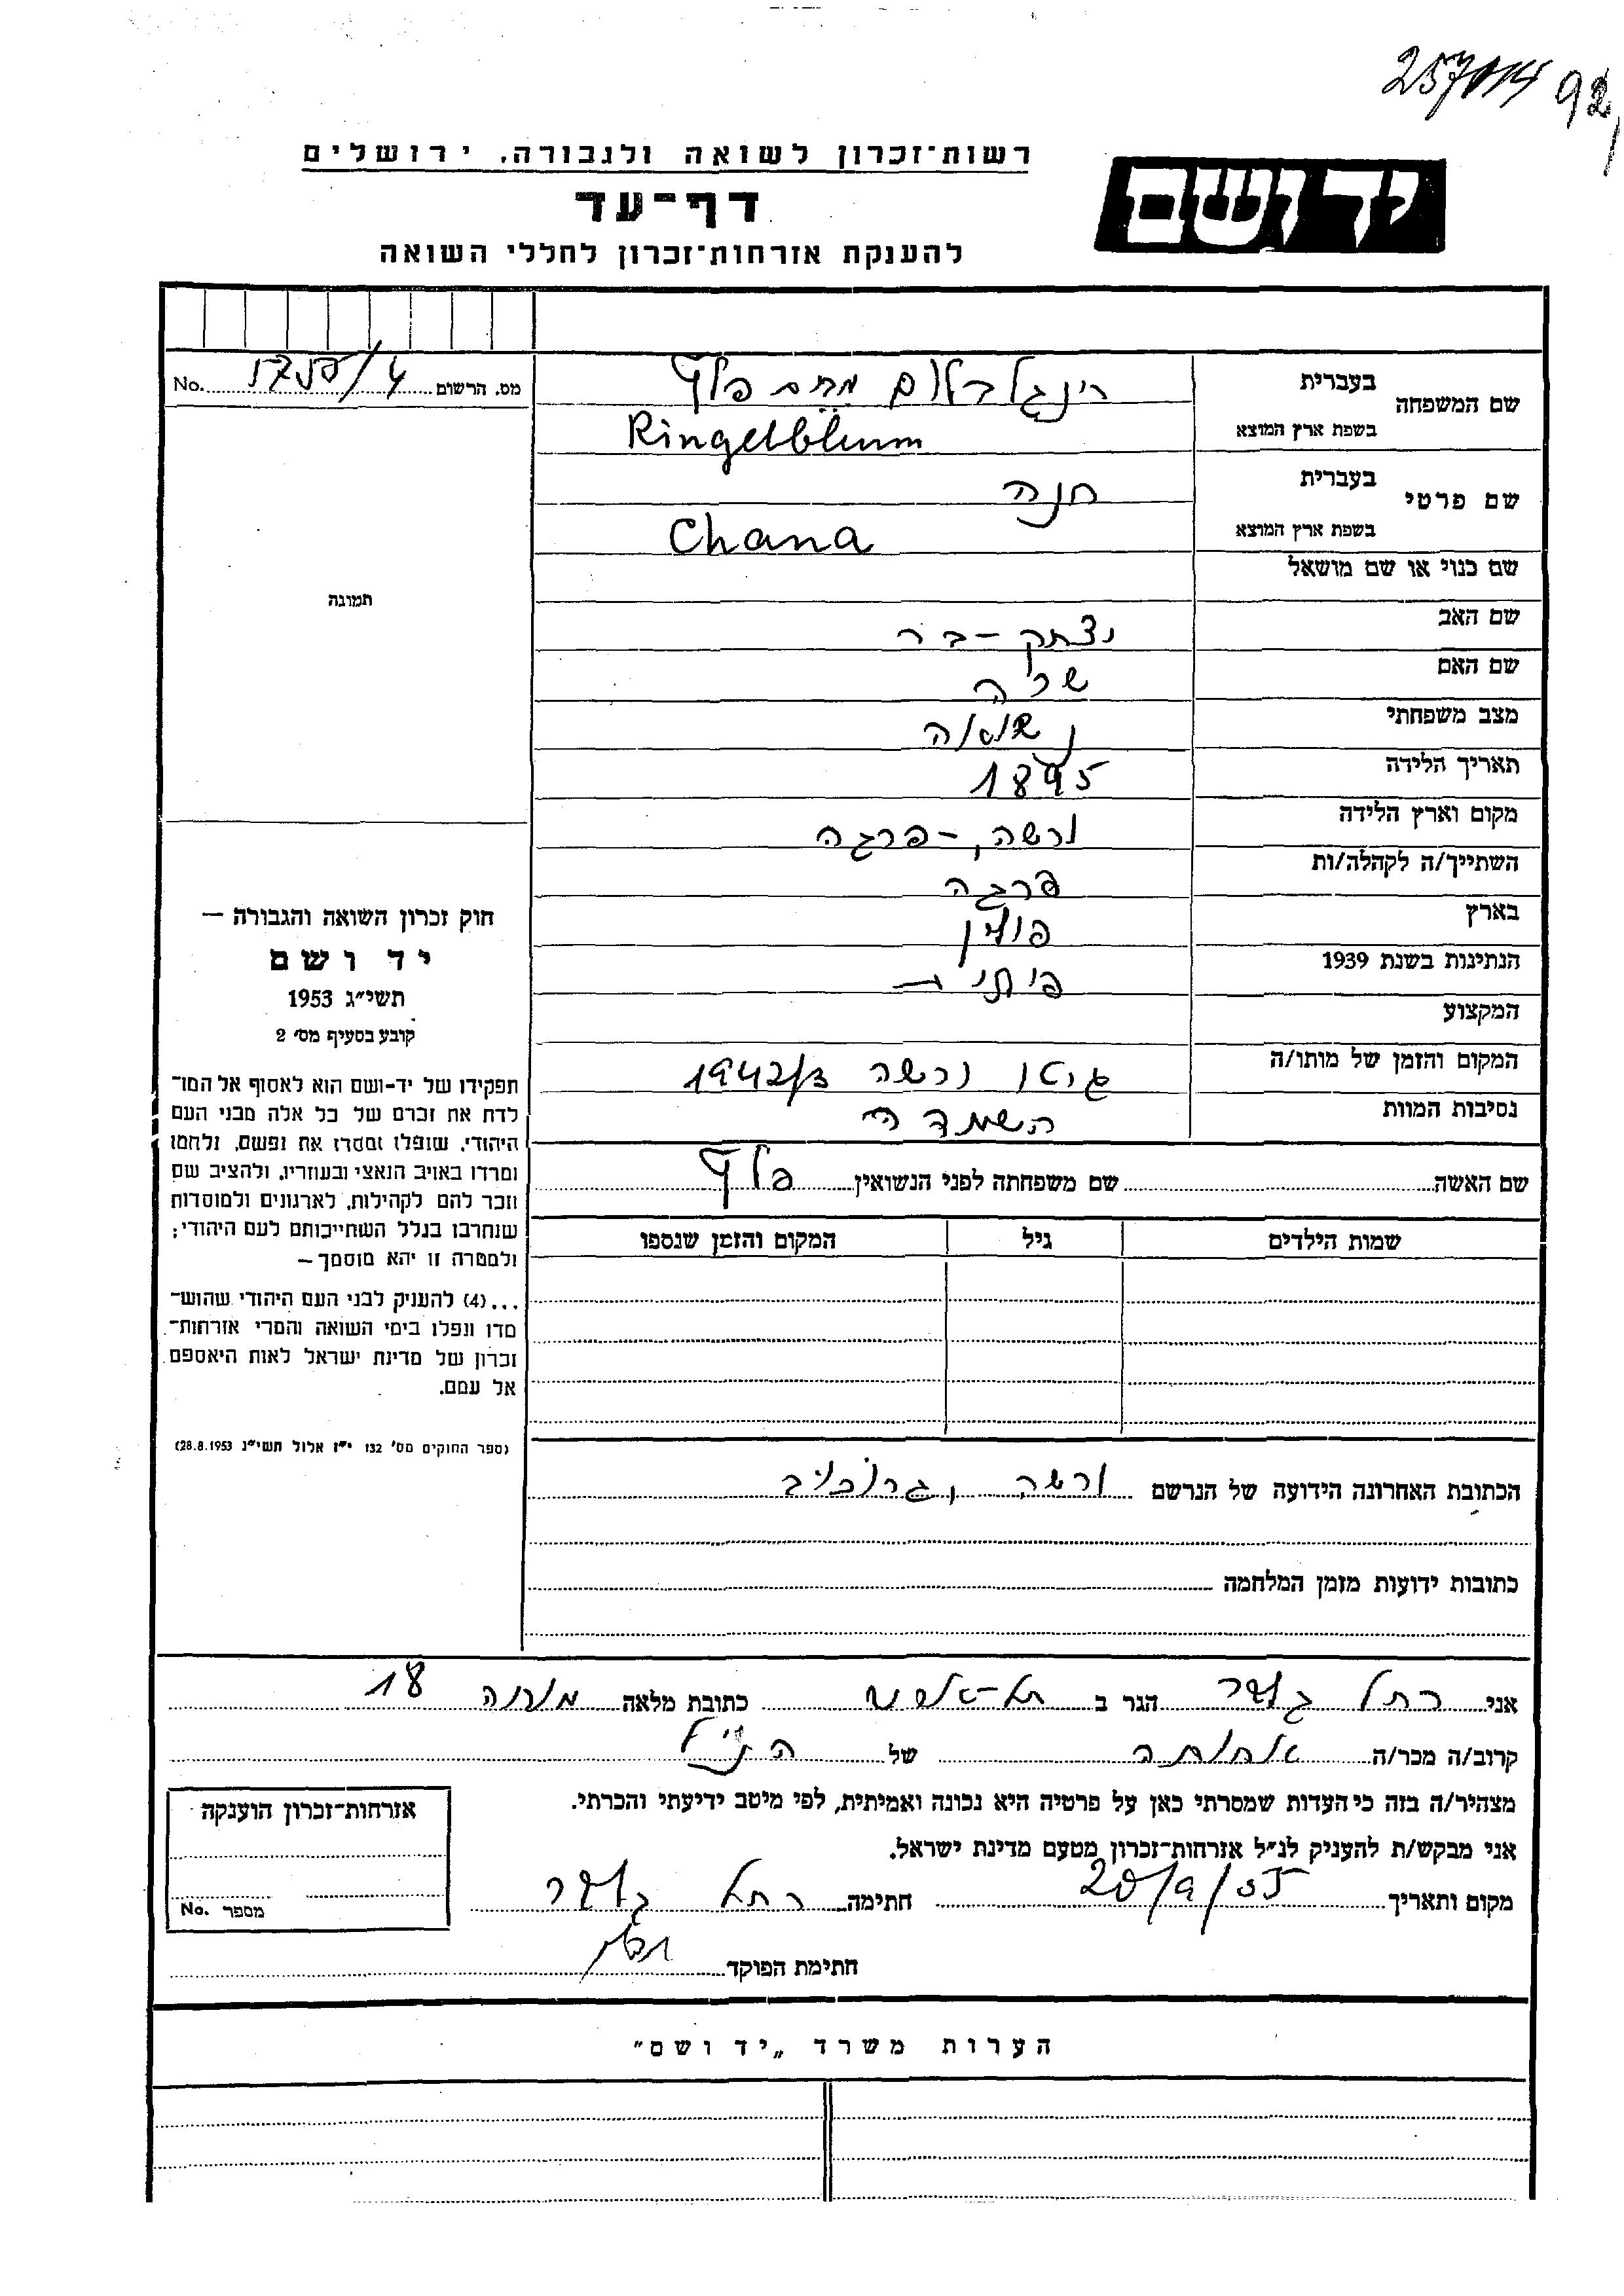 92
רשות־זכרון לשואה ולגבורה, ירושלים
יד ושם
דף־עד
להענקת אזרחות־זכרון לחללי השואה
מס. הרשום No.
שם המשפחה
בעברית רינגלבלום מבית פלף
בשפת ארץ המוצא Ringelblum
שם פרטי
בעברית חנה
בשפת ארץ המוצא Chana
שם כנוי או שם מושאל
שם האב יצחק-בר
שם האם שרה
מצב משפחתי נשואה
תאריך הלידה 1895
מקום וארץ הלידה ורשה, - פרגה
השתייך/ה לקהלה/ות פרגה
בארץ פולין
הנתינות בשנת 1939
המקצוע
המקום והזמן של מותו/ה גיטו ורשה
נסיבות המוות השמדה
שם האשה שם משפחתה לפני הנשואין פלף
שמות הילדים גיל המקום והזמן שנספו
הכתובת האחרונה הידועה של הנרשם ורשה,
כתובות ידועות מזמן המלחמה
תמונה
חוק זכרון השואה והגבורה —
יד ושם
תשי״ג 1953
קובע בסעיף מס׳ 2
תפקידו של יד-ושם הוא לאסוף אל המו־
לדת את זכרם של כל אלה מבני העם
היהודי, שנפלו ומסרו את נפשם, נלחמו
ומרדו באויב הנאצי ובעוזריו, ולהציב שם
וזכר להם לקהילות, לארגונים ולמוסדות
שנחרבו בגלל השתייכותם לעם היהודי;
ולמטרה זו יהא מוסמך —
...(4) להעניק לבני העם היהודי שהוש־
מדו ונפלו בימי השואה והמרי אזרחות־
זכרון של מדינת ישראל לאות היאספם
אל עמם.
(ספר החוקים מס׳ 132 י״ז אלול תשי״ג 28.8.1953)
אני רחל הגר ב תל-אביב כתובת מלאה 18
קרוב/ה מכר/ה אחותה של הנ״ל
מצהיר/ה בזה כי העדות שמסרתי כאן על פרטיה היא נכונה ואמיתית, לפי מיטב ידיעתי והכרתי.
אני מבקש/ת להעניק לנ״ל אזרחות־זכרון מטעם מדינת ישראל.
מקום ותאריך חתימה רחל
חתימת הפוקד
אזרחות־זכרון הוענקה
מספר No.
הערות משרד „יד ושם״